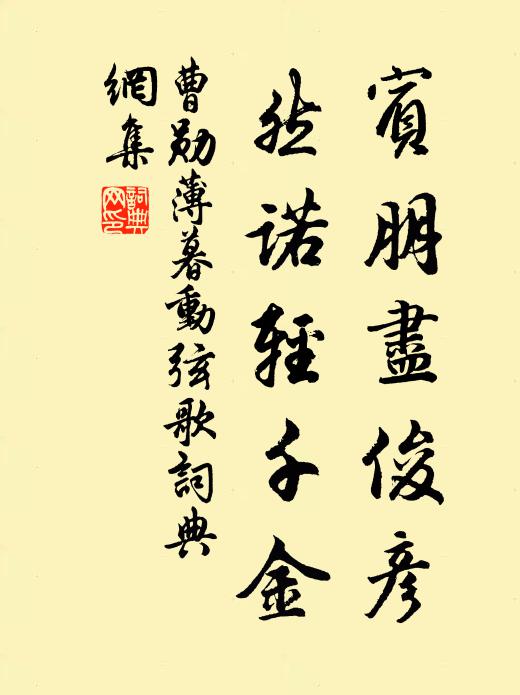 賓朋盡俊彦
然諾輕千金
曹勛薄暮動弦歌詞典
網集
詞典
网印